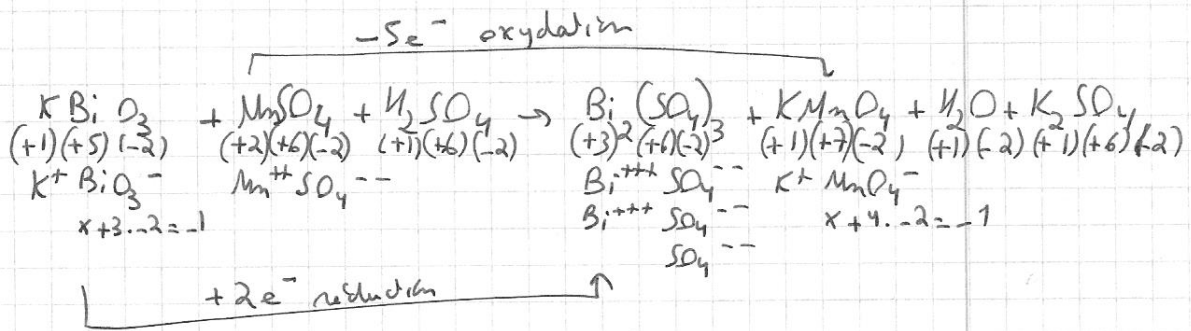 -5e⁻ oxydation
K Bi O₃ + MnSO₄ + H₂SO₄ → Bi₂(SO₄)₃ + KMnO₄ + H₂O + K₂SO₄
(+1)(+5)(-2) (+2)(+6)(-2) (+1)(+6)(-2) (+3)(+6)(-2) (+1)(+7)(-2) (+1)(-2) (+1)(+6)(-2)
K⁺ BiO₃⁻ Mn⁺⁺ SO₄⁻⁻ Bi⁺⁺⁺ SO₄⁻⁻ K⁺ MnO₄⁻
x+3.-2=-1 Bi⁺⁺⁺ SO₄⁻⁻ x+4.-2=-1
SO₄⁻⁻
+2e⁻ réduction